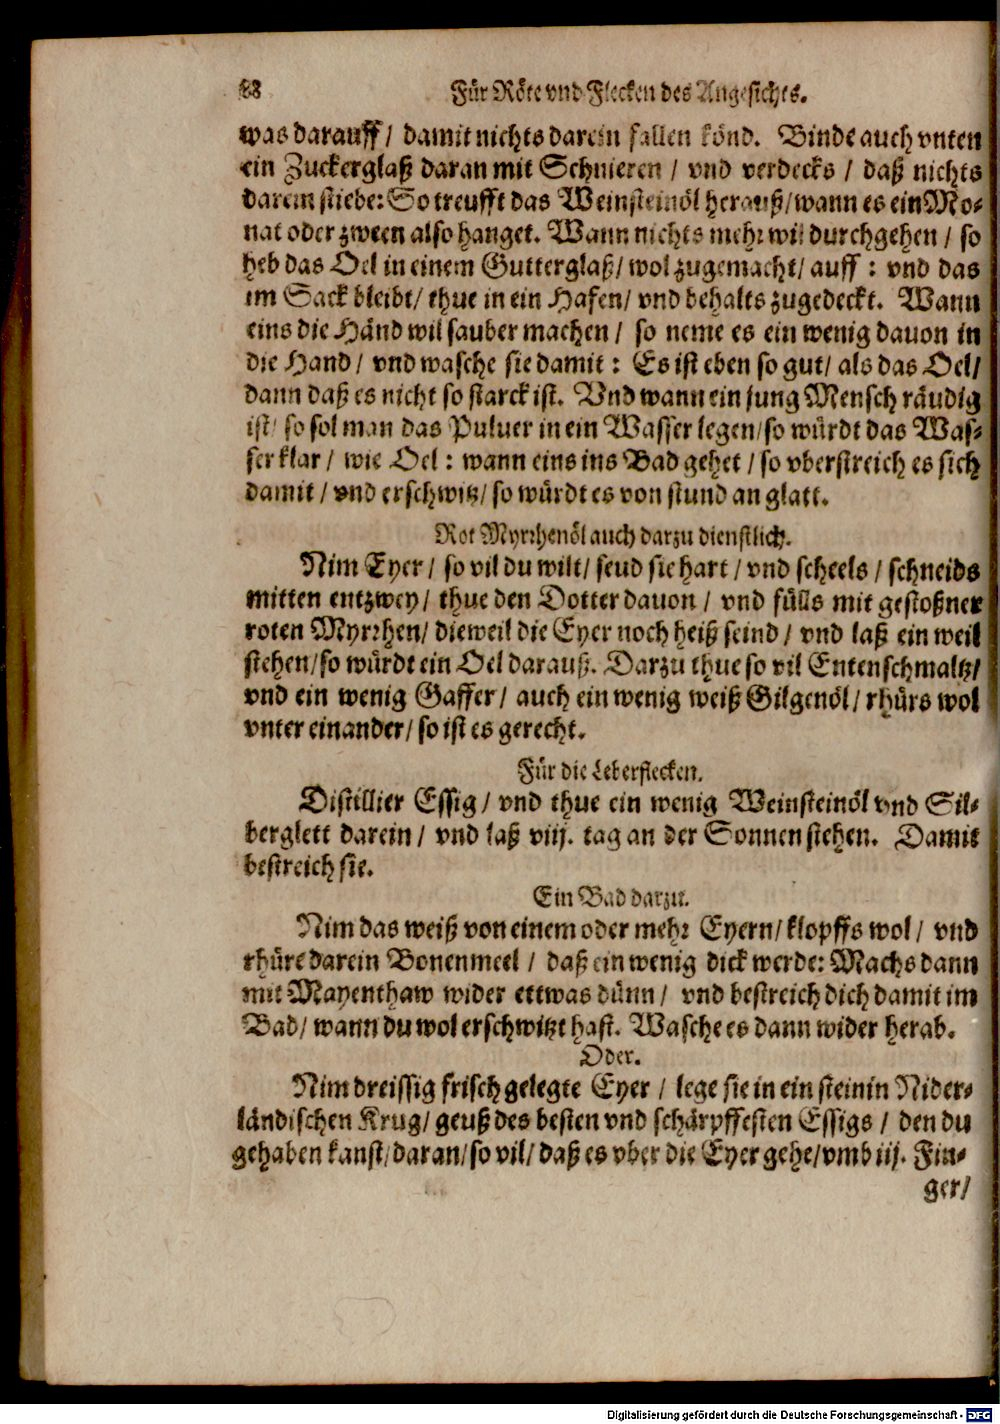 88 Für Röte vnd Flecken des Angesichts.
was darauff/ damit nichts darein fallen könd. Binde auch vnten
ein Zuckerglaß daran mit Schnieren / vnd verdecks / daß nichts
darein stiebe: So treufft das Weinsteinöl herauß/ wann es ein Mo-
nat oder zween also hanget. Wann nichts mehr wil durchgehen / so
heb das Oel in einem Gutterglaß/ wol zugemacht/ auff : vnd das
im Sack bleibt/ thue in ein Hafen/ vnd behalts zugedeckt. Wann
eins die Händ wil sauber machen / so neme es ein wenig dauon in
die Hand/ vnd wasche sie damit : Es ist eben so gut/ als das Oel/
dann daß es nicht so starck ist. Vnd wann ein jung Mensch räudig
ist/ so sol man das Puluer in ein Wasser legen/ so würdt das Was-
ser klar / wie Oel : wann eins ins Bad gehet / so vberstreich es sich
damit / vnd erschwitz/ so würdt es von stund an glatt.
Rot Myrrhenöl auch darzu dienstlich.
Nim Eyer / so vil du wilt/ seud sie hart / vnd scheels / schneids
mitten entzwey/ thue den Dotter dauon / vnd fülls mit gestoßner
roten Myrrhen/ dieweil die Eyer noch heiß seind / vnd laß ein weil
stehen/ so würdt ein Oel darauß. Darzu thue so vil Entenschmaltz/
vnd ein wenig Gaffer/ auch ein wenig weiß Gilgenöl/ rhürs wol
vnter einander/ so ist es gerecht.
Für die Leberflecken.
Distillier Essig/ vnd thue ein wenig Weinsteinöl vnd Sil-
berglett darein/ vnd laß viij. tag an der Sonnen stehen. Damit
bestreich sie.
Ein Bad darzu.
Nim das weiß von einem oder mehr Eyern/ klopffs wol/ vnd
rhüre darein Bonenmeel / daß ein wenig dick werde: Machs dann
mit Mayenthaw wider ettwas dünn/ vnd bestreich dich damit im
Bad/ wann du wol erschwitzt hast. Wasche es dann wider herab.
Oder.
Nim dreissig frisch gelegte Eyer / lege sie in ein steinin Nider-
ländischen Krug/ geuß des besten vnd schärpffesten Essigs / den du
gehaben kanst/ daran/ so vil/ daß es vber die Eyer gehe/ vmb iij. Fin-
ger/
Digitalisierung gefördert durch die Deutsche Forschungsgemeinschaft - DFG